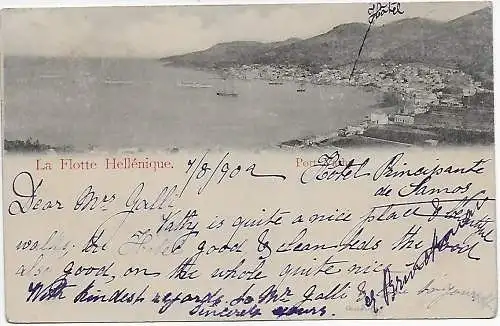 Hotel
La Flotte Hellénique.
7/8/902
Port
Hotel Principante
de Samos
Dear Mrs Galli
Vathy is quite a nice place &
walks, the Hotel good & clean beds the food
also good, on the whole quite nice
With kindest regards to Mr Galli &
Sincerely yours.